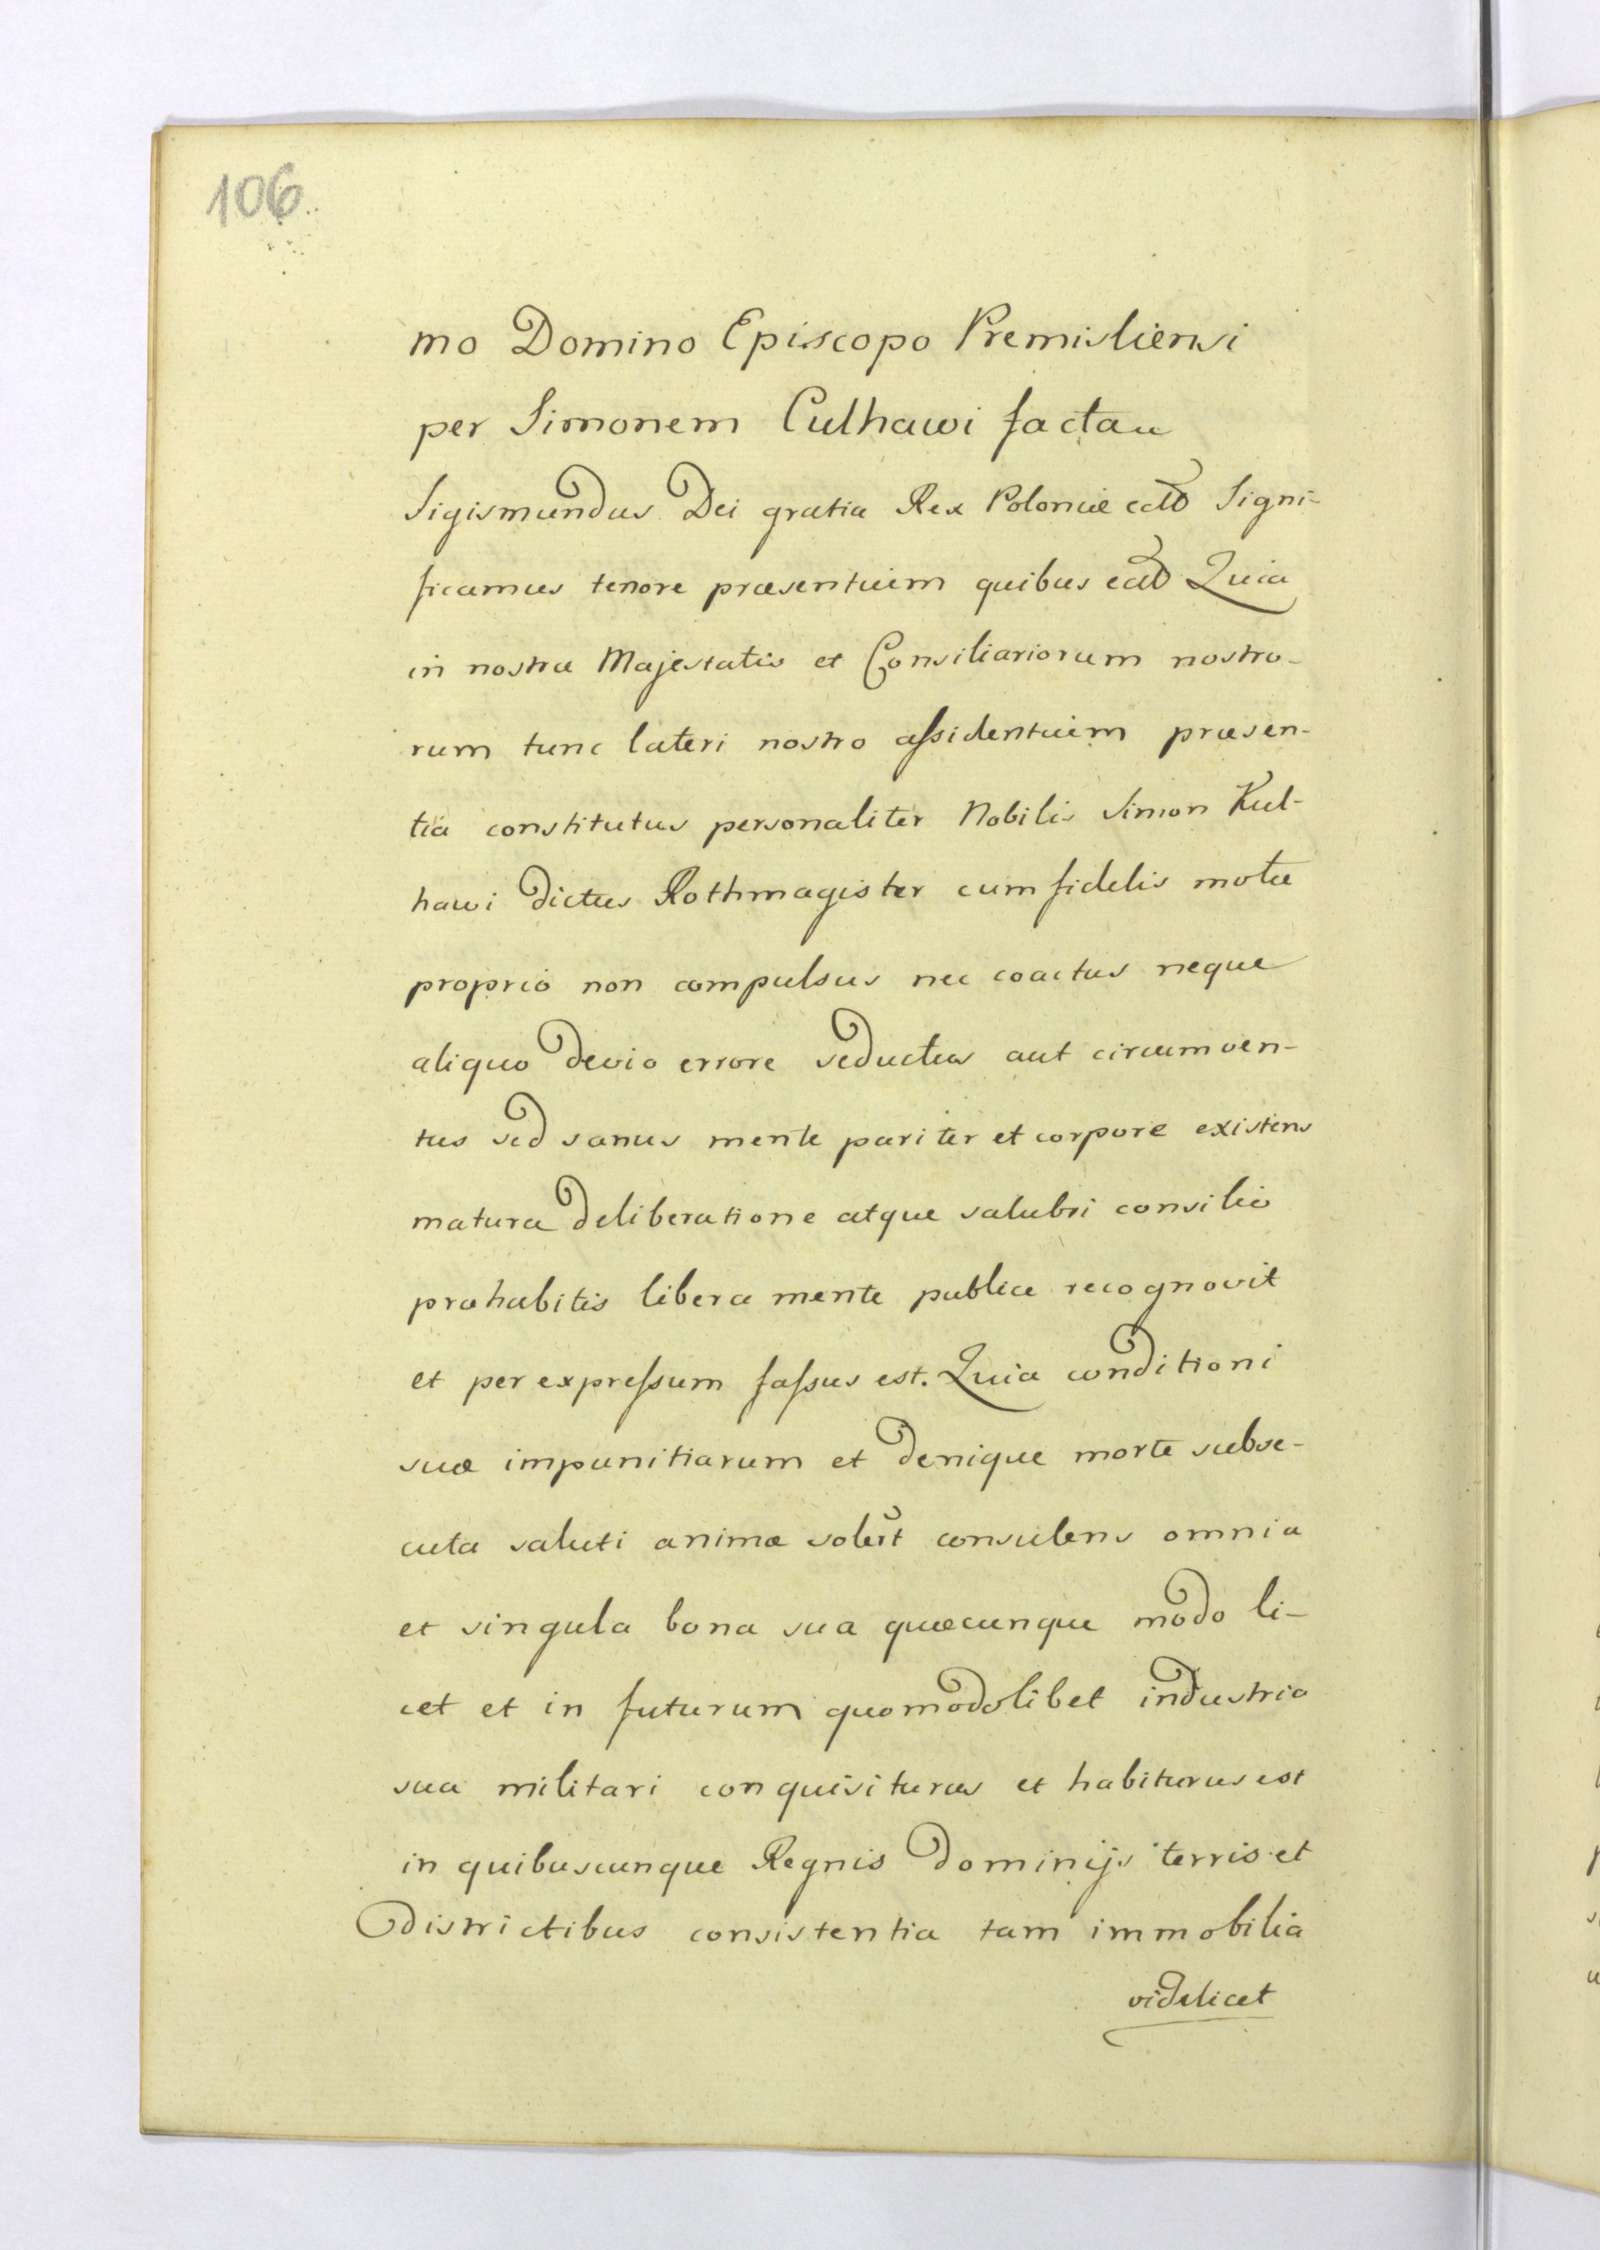 106
mo Domino Episcopo Premisliensi
per Simonem Culhawi facta
Sigismundus Dei gratia Rex Poloniæ Signi-
ficamus tenore præsentium quibus Quia
in nostra Majestatis et Consiliariorum nostro-
rum tunc lateri nostro assidentium præsen-
tia constitutus personaliter Nobilis Simon Kul-
hawi dictus Rothmagister cum fidelis motu
proprio non compulsus nec coactus neque
aliquo devio errore seductus aut circumven-
tus sed sanus mente pariter et corpore existens
matura deliberatione atque salubri consilio
præhabitis libera mente publice recognovit
et per expressum fassus est. Quia conditioni
suæ impunitiarum et denique morte subse-
cuta saluti animæ consulens omnia
et singula bona sua quæcunque modo li-
cet et in futurum quomodolibet industria
sua militari conquisiturus et habiturus est
in quibuscunque Regnis dominijs terris et
districtibus consistentia tam immobilia
videlicet